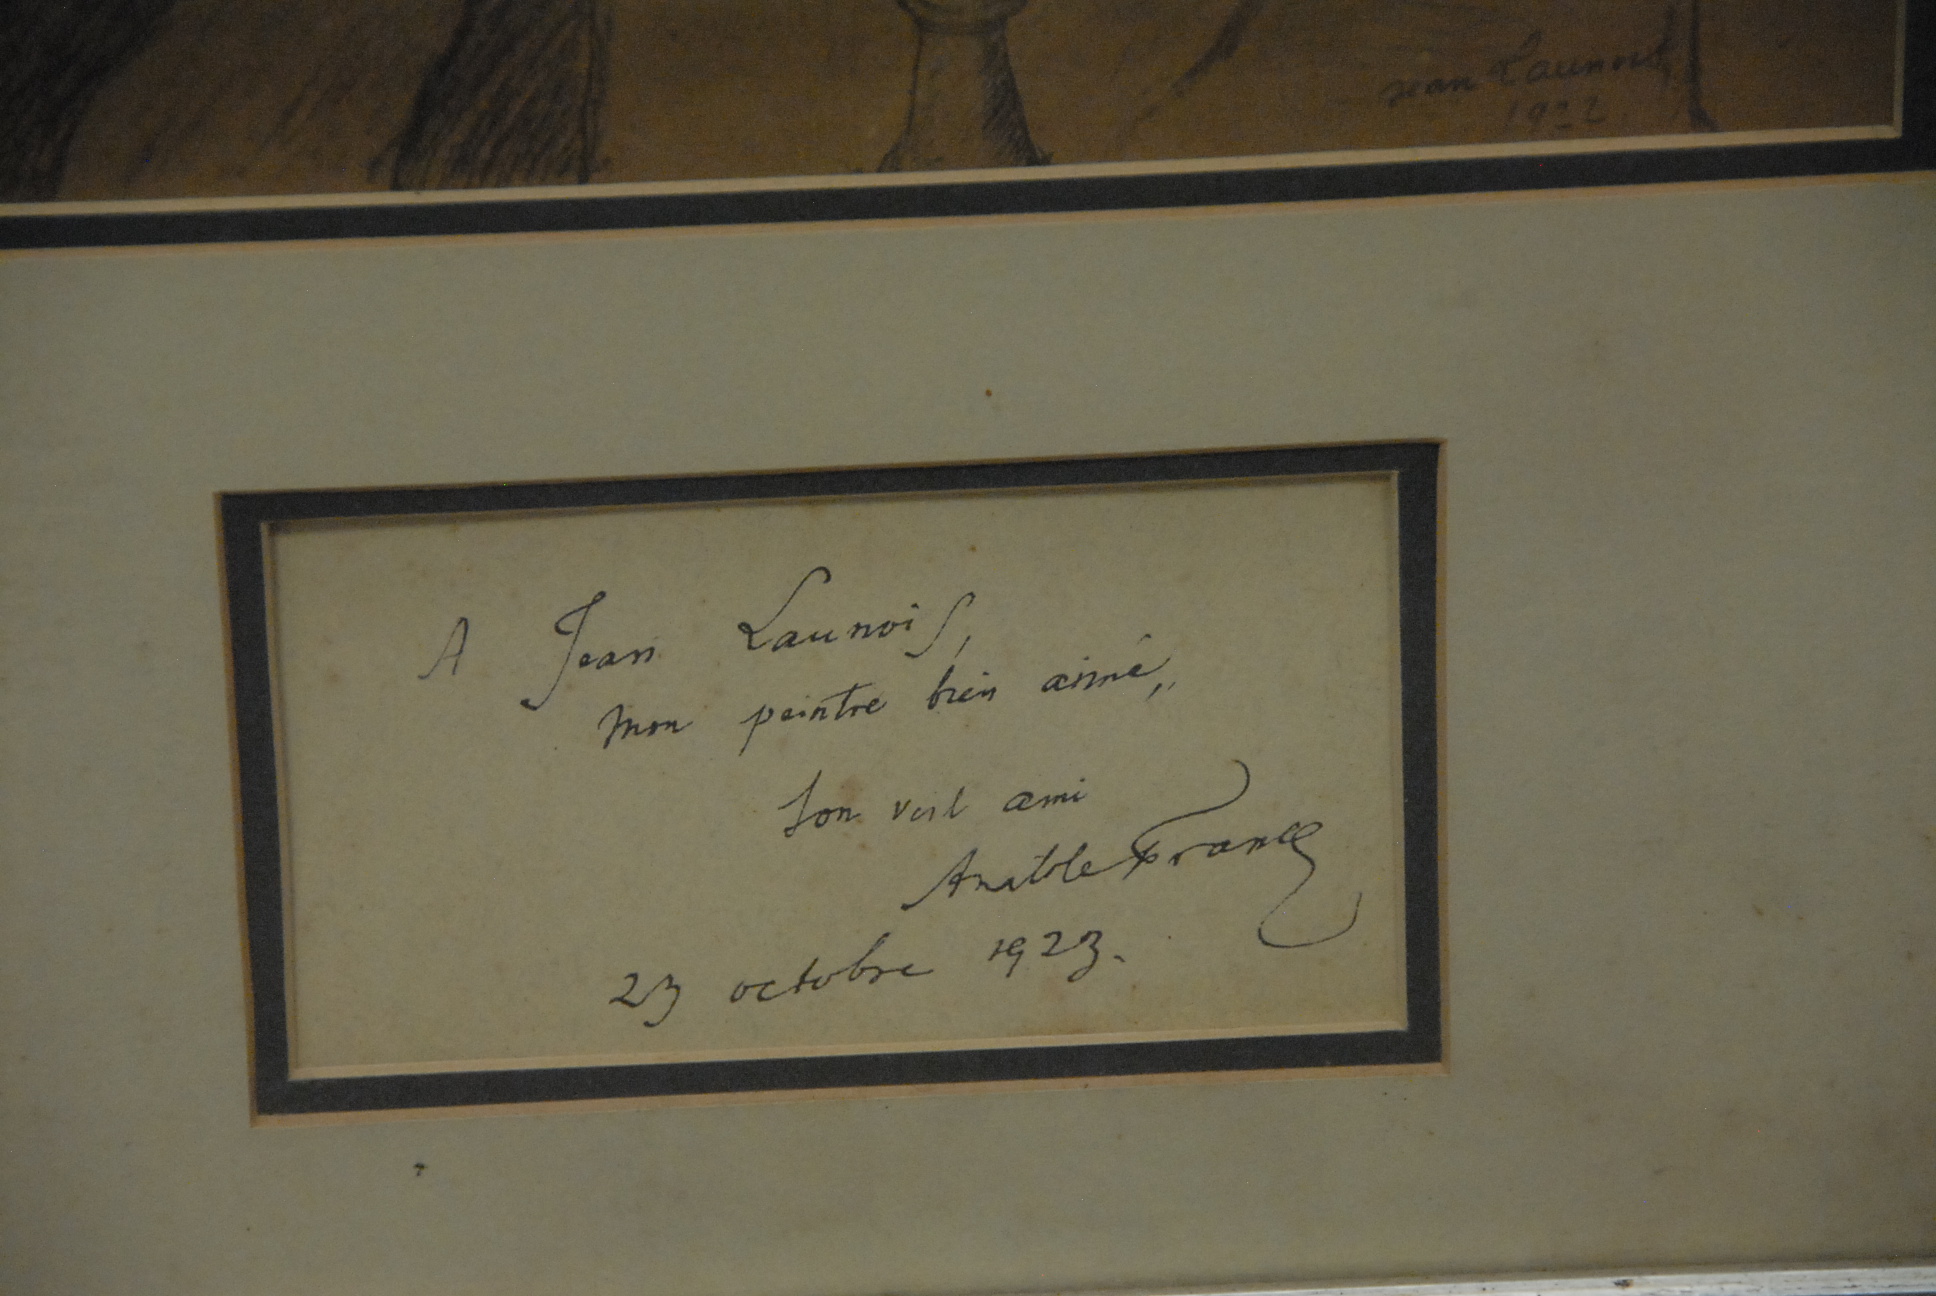 Jean Launois
1922
A Jean Launois,
mon peintre bien aimé,
son vieil ami
Anatole France
23 octobre 1923.